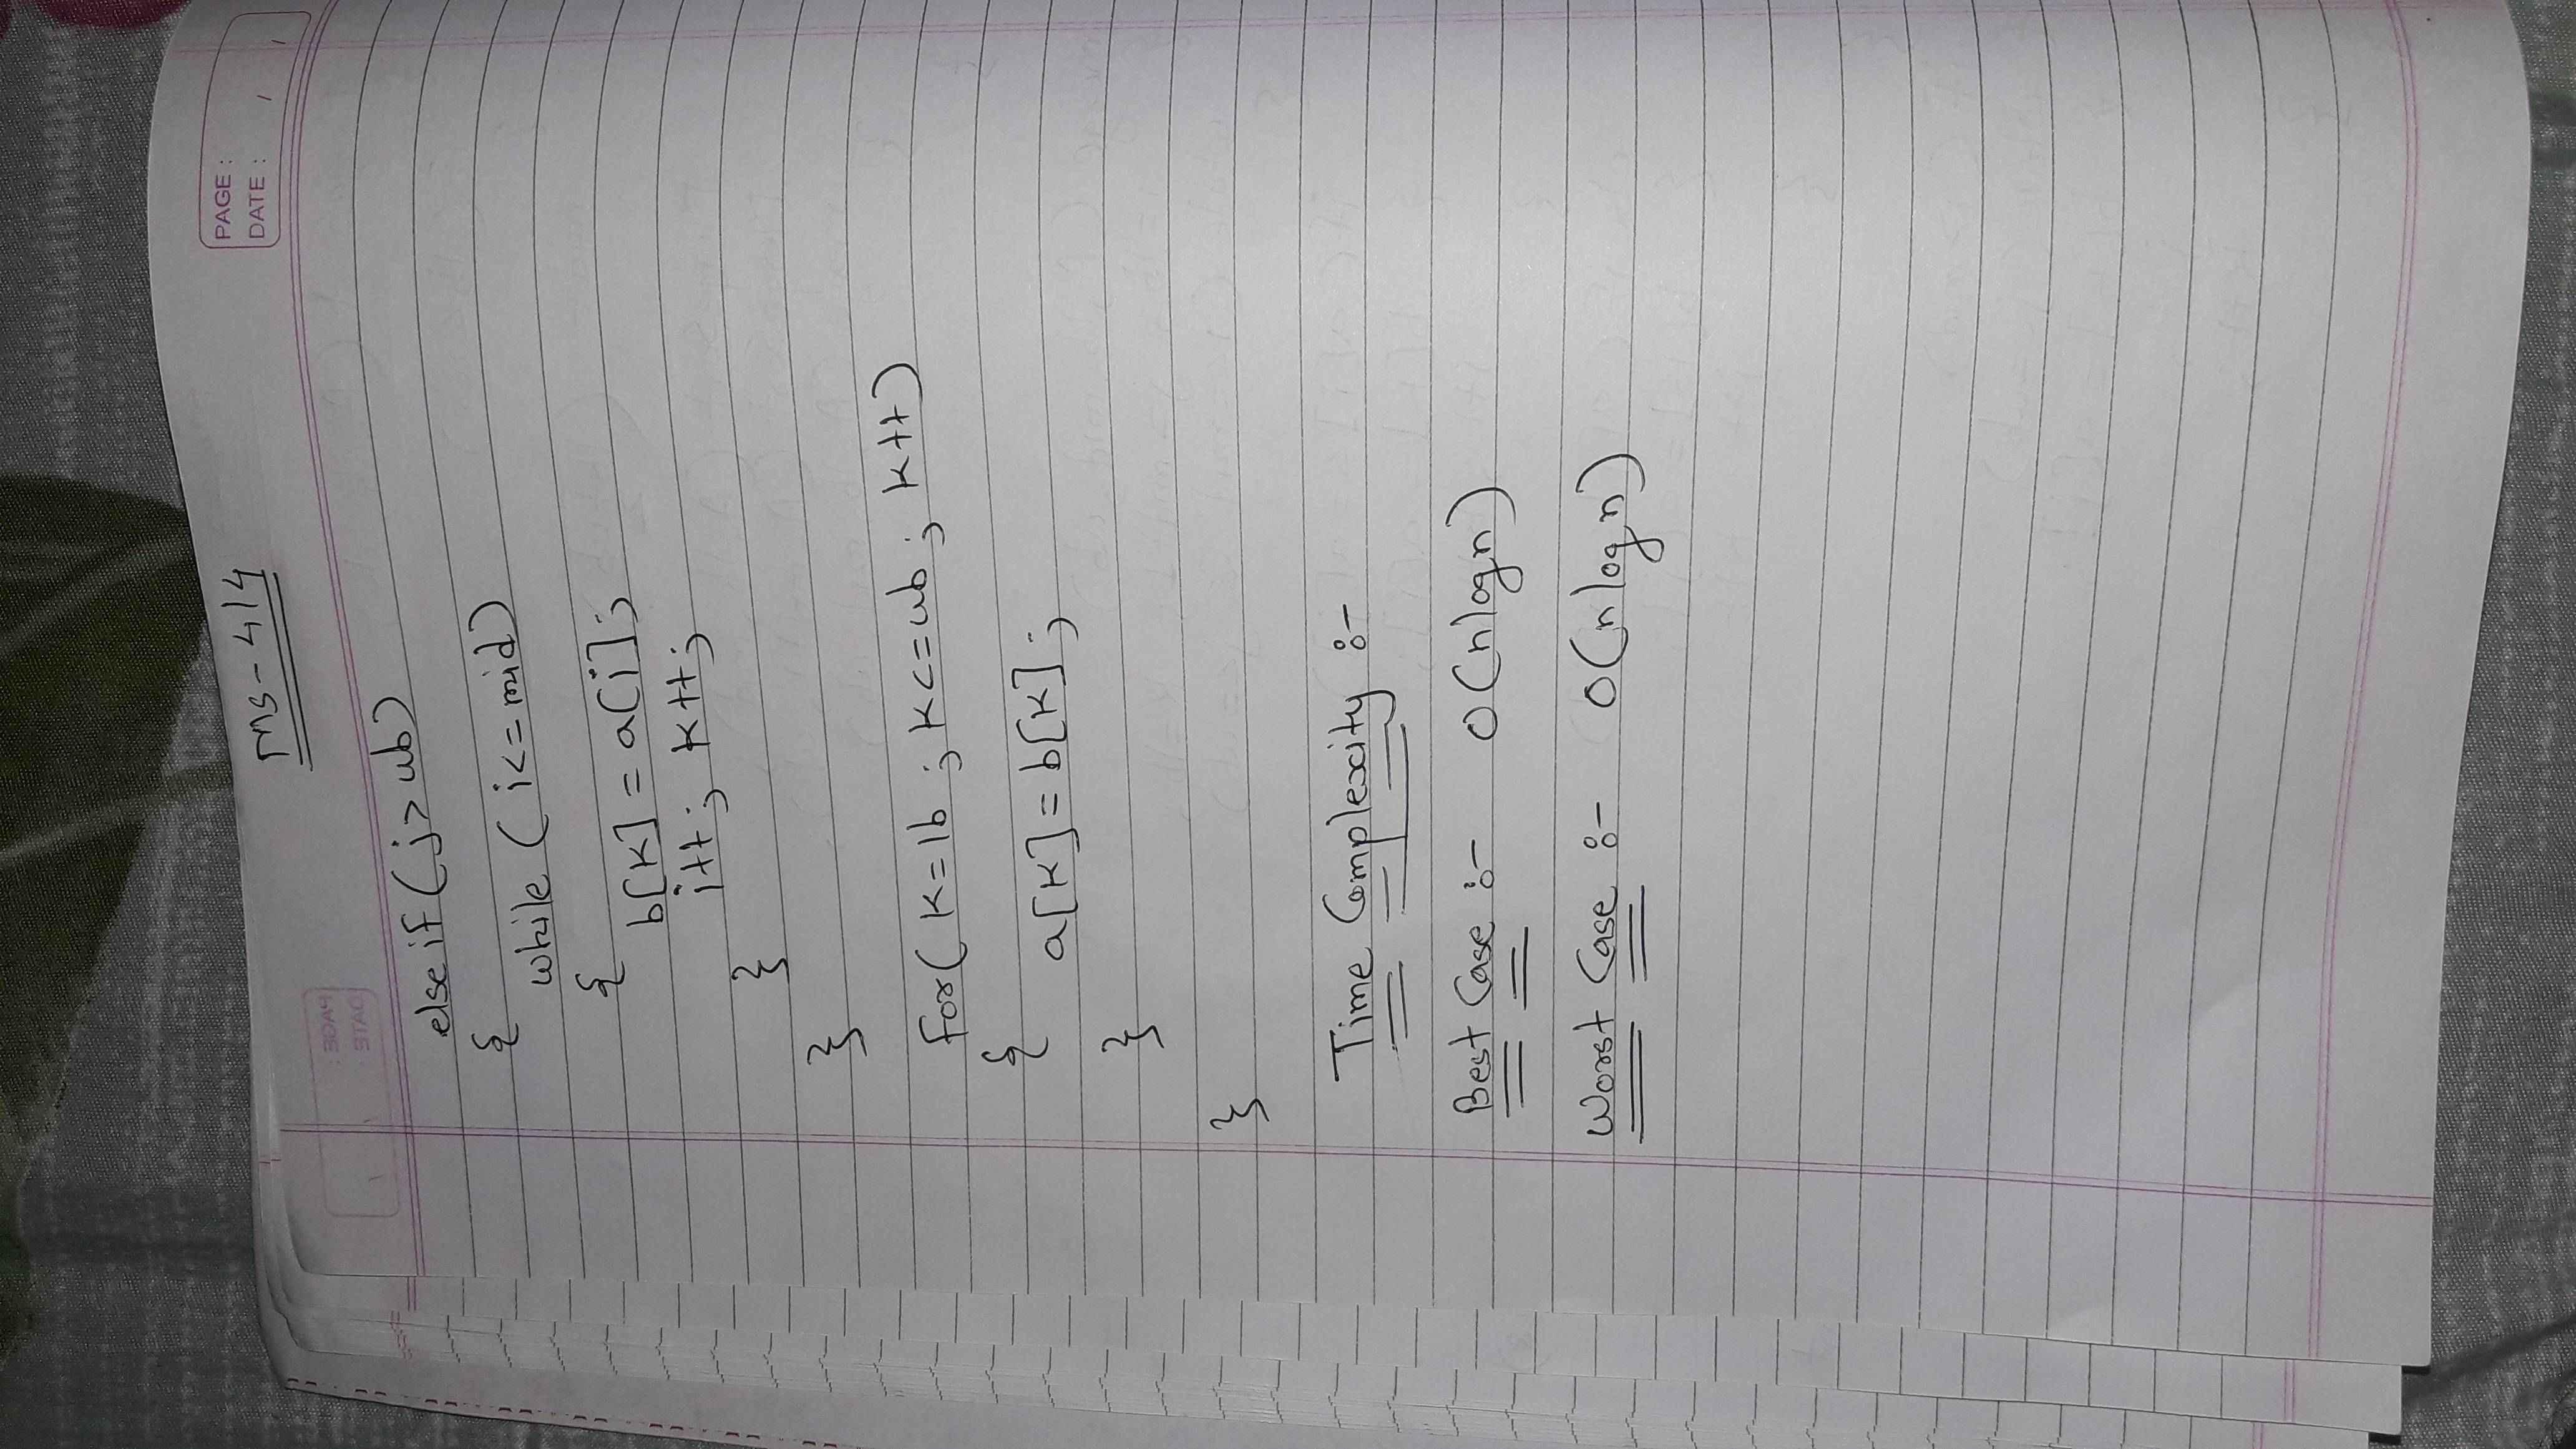 ms-4/4
PAGE :
DATE : / /
else if (j>ub)
{
while (i<=mid)
{
b[k] = a[i];
i++; k++;
}
}
for( k=lb ; k<=ub ; k++)
{
a[k]=b[k];
}
}
Time Complexity :-
Best Case :- O(nlogn)
Worst Case :- O(nlogn)